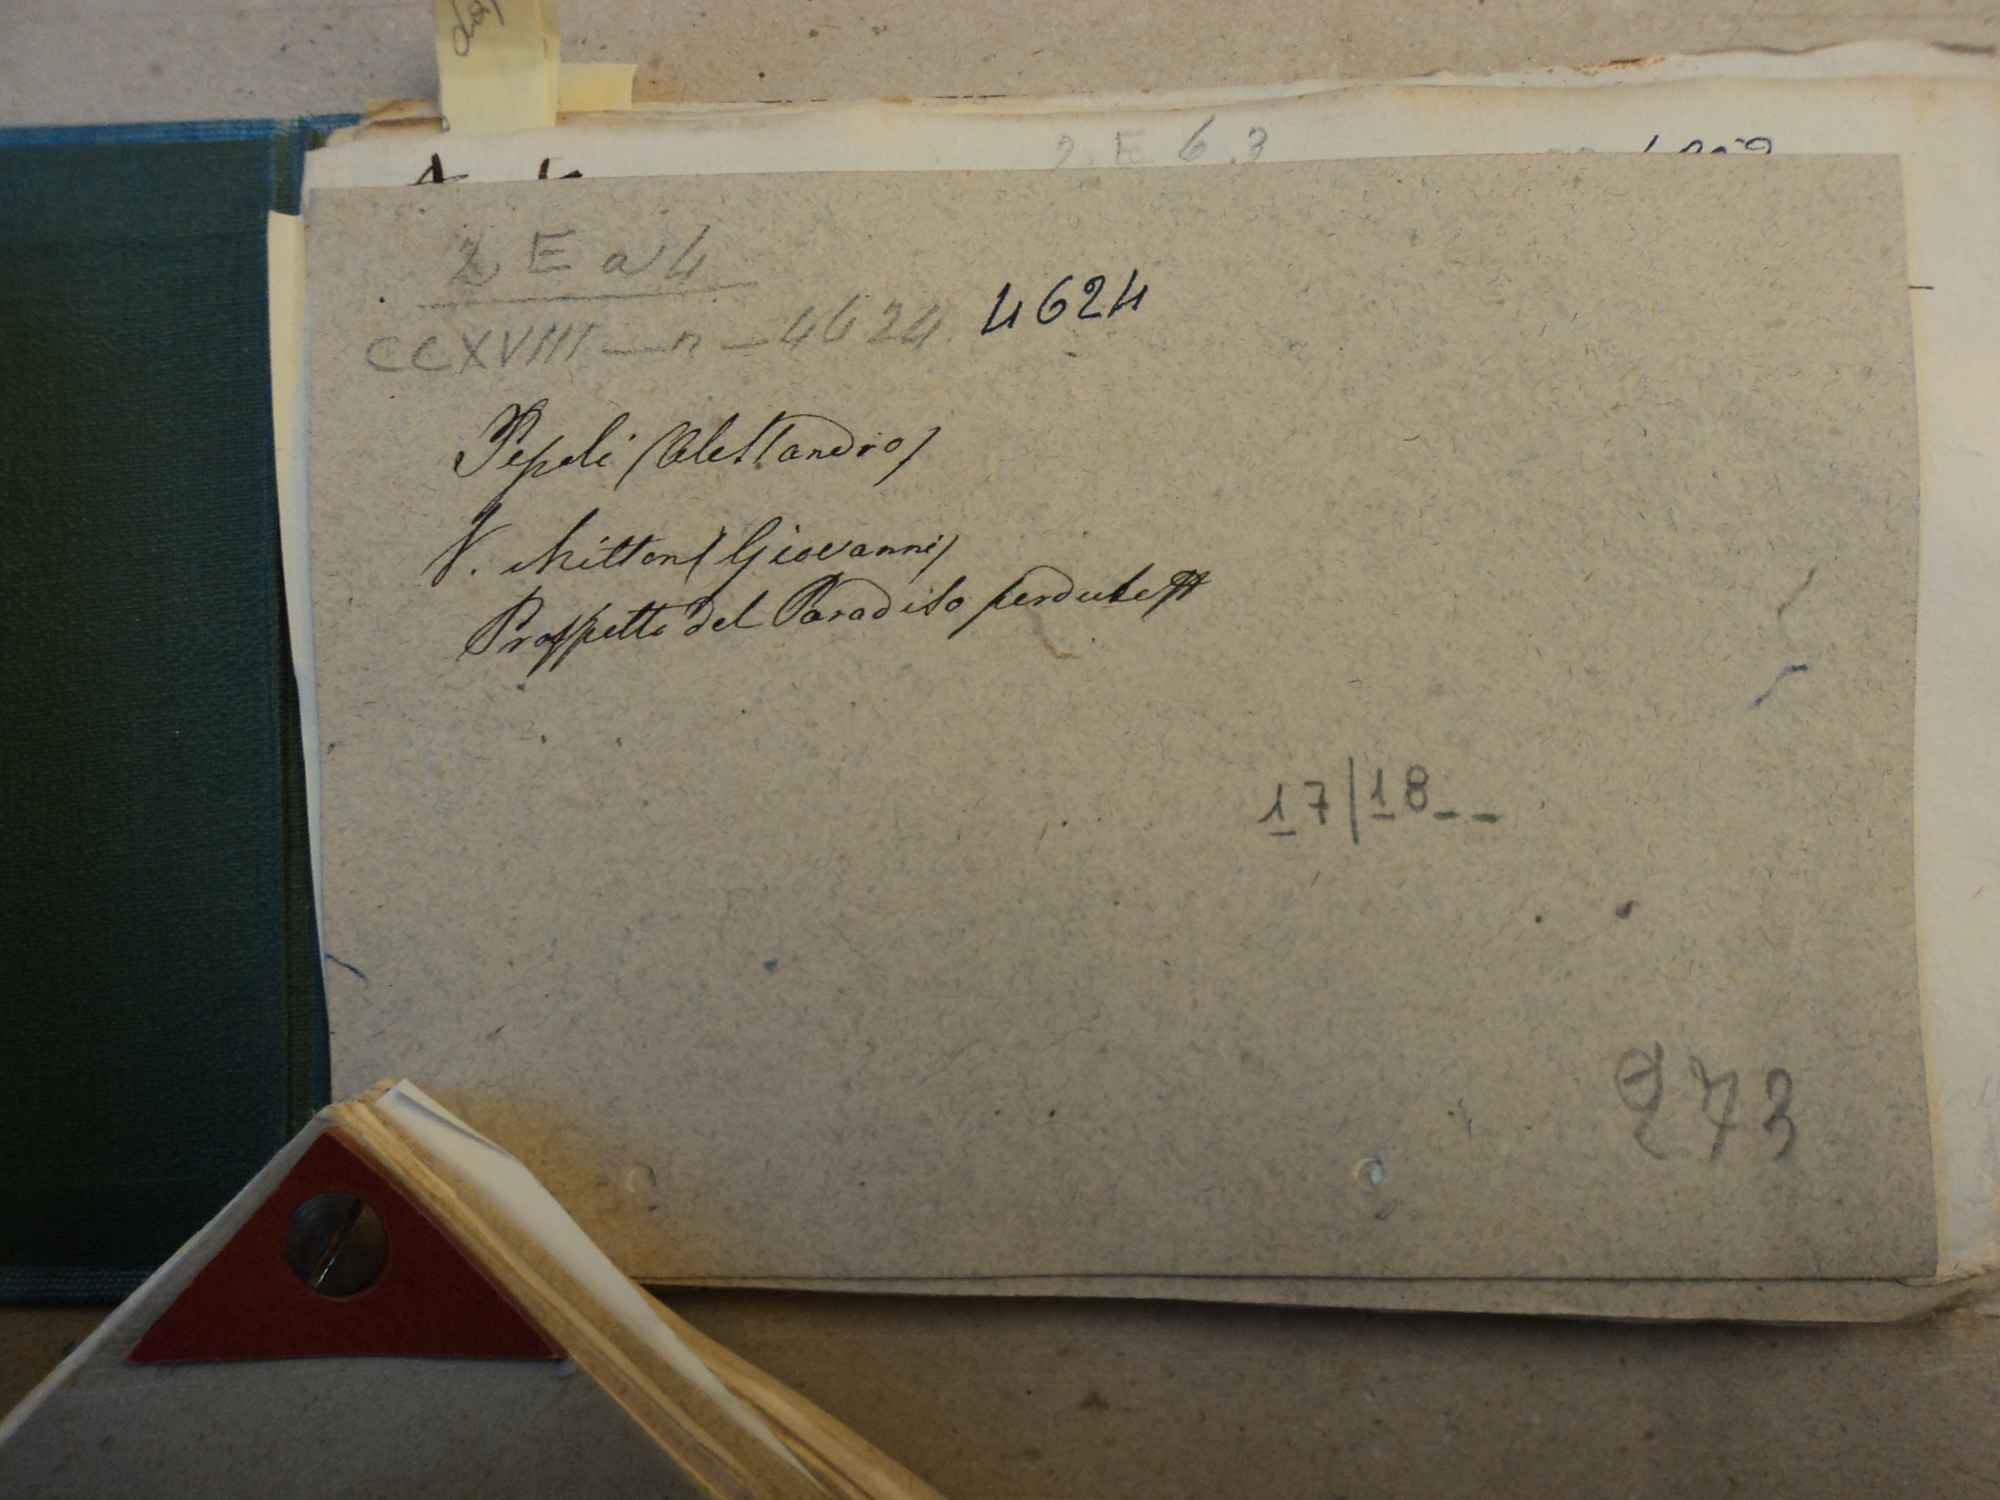 2 E 6.3
2 E a 4
CCXVIII — n — 4624 4624
Pepoli (Alessandro)
V. Milton (Giovanni)
Prospetto del Paradiso perduto
17/18__
273